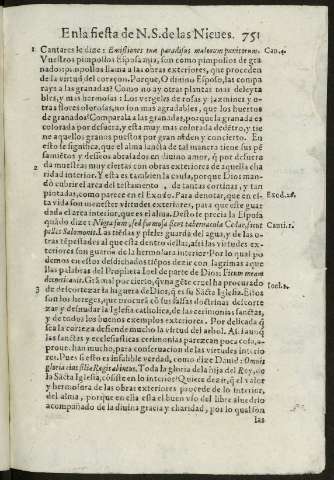 En la fiesta de N.S. de las Nieues. 751
1 Cantares le dize: Emissiones tuæ paradisus malorum punicorum. Can. 4.
Vuestros pimpollos Esposa mia, son como pimpollos de gra-
nados: pimpollos llama a las obras exteriores, que proceden
de la virtud del coraçon. Porque, O diuino Esposo, las compa
rays a las granadas? Como no ay otras plantas mas deleyta-
bles, y mas hermosas? Los vergeles de rosas y jazmines y o-
tras flores olorosas, no son mas agradables, que los huertos
de granados? Comparala a las granadas, porque la granada es
colorada por defuera, y esta muy mas colorada dedẽtro, y tie
ne aquellos granos puestos por gran orden y concierto. En
esto se significa, que el alma sancta de tal manera tiene sus pẽ
samiẽtos y desseos abrasados en diuino amor, q̃ por defuera
2 da muestras muy ciertas con obras exteriores de aquella cha
ridad interior. Y esta es tambien la causa, porque Dios man-
dò cubrir el arca del testamento, de tantas cortinas, y tan
pintadas, como parece en el Exodo. Para denotar, que en es- Exod. 26.
ta vida son menester virtudes exteriores, para que este guar
dada el area interior, que es el alma. Desto se precia la Esposa
quãdo dize: Nigra sum, sed formosa sicut tabernacula Cedar, sicut Canti. 1.
pelles Salomonis. Las tiẽdas y pieles guardã del agua, y de las o-
tras tẽpestades al que esta dentro dellas, assi las virtudes ex-
teriores son guarda de la hermosura interior: Por lo qual po
demos en estos desdichados tiẽpos dezir con lagrimas aque
llas palabras del Propheta Ioel de parte de Dios: Ficum meam Ioel. 1.
decorticauit. Grã mal por cierto, q̃ vna gẽte cruel ha procurado
3 de descortezar la higuera de Dios, q̃ es su Sãcta Iglesia. Estos
son los hereges, que procurã cõ sus falsas doctrinas descorte
zar y desnudar la Iglesia catholica, de las cerimonias sanctas,
y de todos los buenos exemplos exteriores. Por delicada q̃
sea la corteza defiende mucho la virtud del arbol. Assi aunq̃
las sanctas y ecclesiasticas cerimonias parezcan poca cosa, a-
prouechan mucho, para conseruacion de las virtudes interio
res. Pues si esto es infalible verdad, como dize Dauid: Omnis
gloria eius filiæ Regis ab intus. Toda la gloria de la hija del Rey, de
la Sãcta Iglesia, cõsiste en lo interior? Quiere dezir, q̃ el valor
y hermosura de las obras exteriores procede de lo interior,
del alma, porque en ella esta el buen vso del libre aluedrio
acompañado de la diuina gracia y charidad, por lo qual son
las